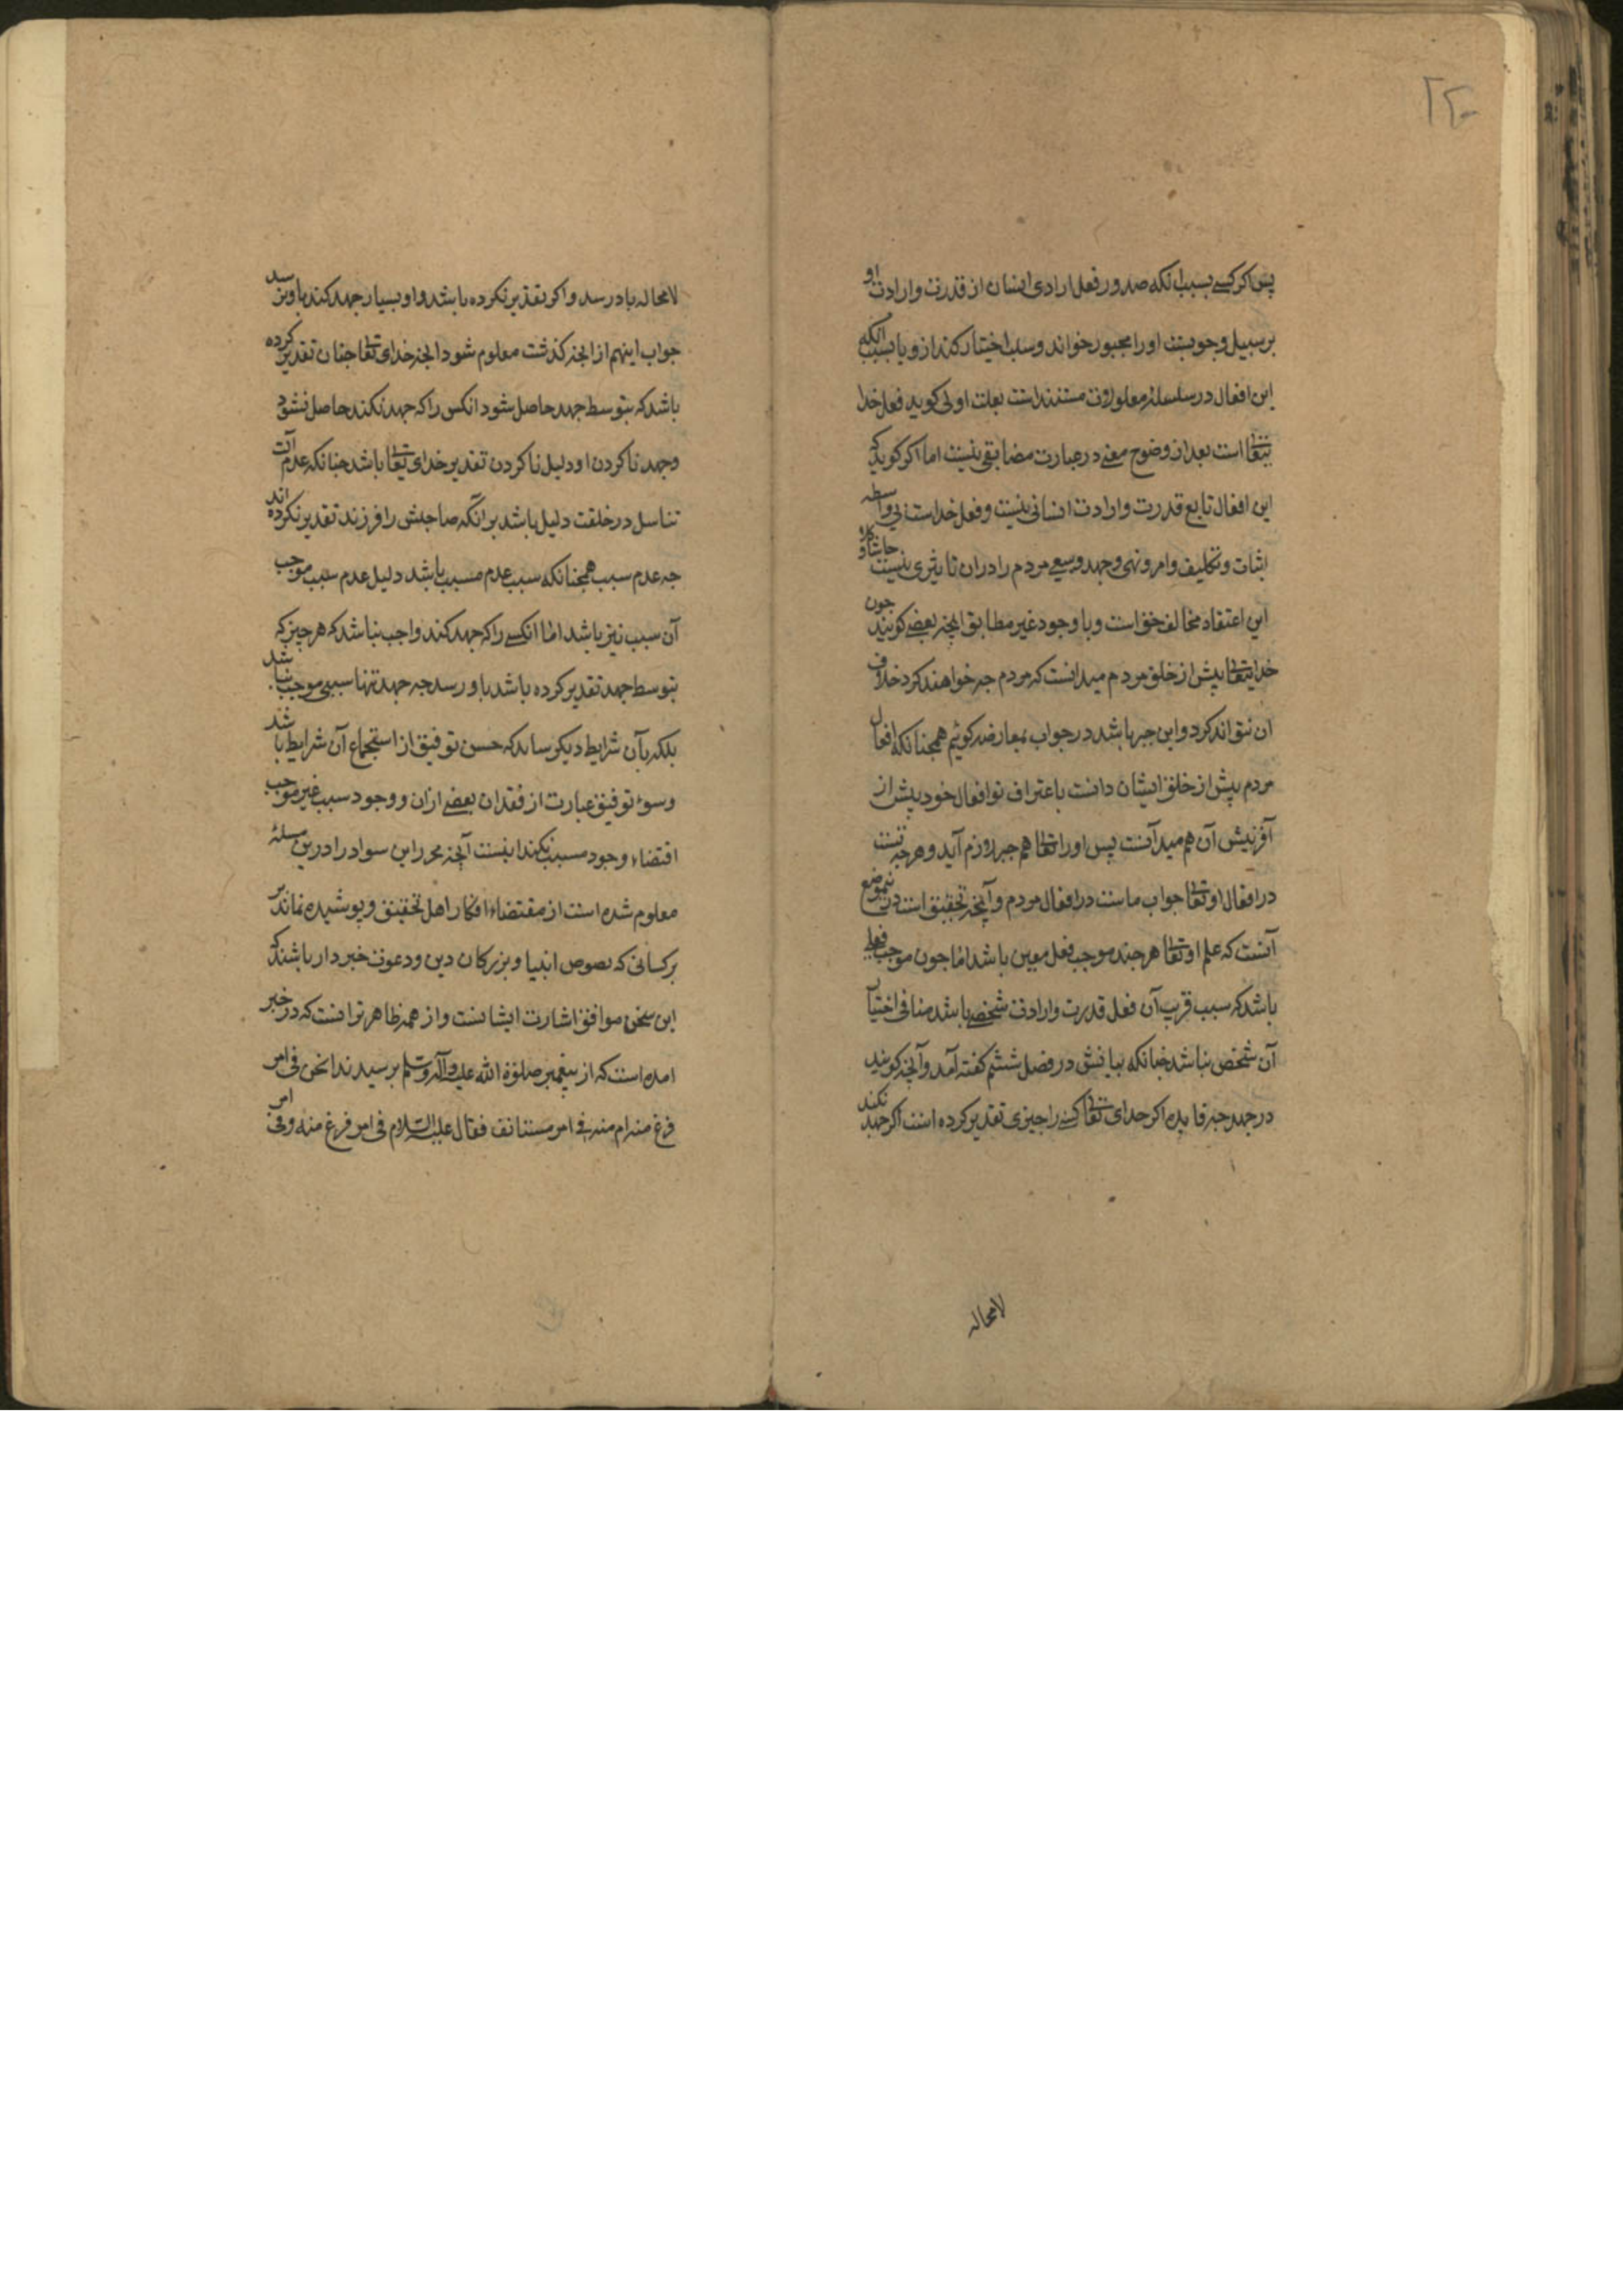 ۲۲۰
پس اکر کسی بسبب انکه صدور فعل ارادی انسان از قدرت و ارادت او
بر سبیل وجوبست او را مجبور خواند و سلب اختیار کند ازو یا بسبب انکه
این افعال در سلسله معلولات مستندست بعلت اولی کوید فعل خدا
تعالی است بعد از وضوح معنی در عبارت مضایقتی نیست اما اکر کوید که
این افعال تابع قدرت و ارادت انسانی نیست و فعل خداست بی واسطه
اثبات و تکلیف و امر و نهی و جهد و سعی مردم را دران تاثیری نیست حاشا و کلا
این اعتقاد مخالف حق است و با وجود غیر مطابق انچه بعضی کویند چون
خدای تعالی پیش از خلق مردم میدانست که مردم چه خواهند کرد خلاف
ان نتواند کرد و این جبر باشد در جواب بمعارضه کوئیم همچنانکه افعال
مردم پیش از خلق ایشان دانست باعتراف تو افعال خود پیش از
آفرینش آن هم میدانست پس او را تعالی هم جبر لازم آید و هرچه تست
در افعال او تعالی جواب ماست در افعال مردم و آنچه تحقیق است درین موضع
آنست که علم او تعالی هر چند موجب فعل معین باشد اما چون موجب فعلی
باشد که سبب قریب آن فعل قدرت و ارادت شخصی باشد منافی اختیار
آن شخص نباشد چنانکه بیانش در فصل ششم کفته آمد و آنچه کویند
در جهد چه فایده اکر خدای تعالی کسی را چیزی تقدیر کرده است اکر جهد نکند
لامحاله
لامحاله بدو رسد و اکر تقدیر نکرده باشد و او بسیار جهد کند باو نرسد
جواب اینهم از انچه کذشت معلوم شود انچه خدای تعالی چنان تقدیر کرده
باشد که بتوسط جهد حاصل شود انکس را که جهد نکند حاصل نشود
و جهد ناکردن او دلیل ناکردن تقدیر خدای تعالی باشد چنانکه عدم آلت
تناسل در خلقت دلیل باشد بر انکه صاحبش را فرزند تقدیر نکرده اند
چه عدم سبب همچنانکه سبب عدم مسبب باشد دلیل عدم سبب موجب
آن سبب نیز باشد اما انکسی را که جهد کند واجب نباشد که هر چیز که
بتوسط جهد تقدیر کرده باشد باو رسد چه جهد تنها سببی موجب نباشد
بلکه بآن شرایط دیکر ... که حسن توفیق از استجماع آن شرایط باشد
و سوء توفیق عبارت از فقدان بعضی ازان و وجود سبب غیر موجب
اقتضاء وجود مسبب نکند اینست آنچه محرر این سواد را درین مسئله
معلوم شده است از مقتضاء افکار اهل تحقیق و پوشیده نماند
بر کسانی که بصوص انبیا و بزرکان دین و دعوت خبردار باشند که
این سخن موافق اشارت ایشانست و از همه ظاهرتر انست که در خبر
امده است که از پیغمبر صلوة الله علیه وآله وسلم پرسیدند انحن فی امر
فرغ منه ام منه فی امر مستانف فقال علیه السلام فی امر فرغ منه وفی امر